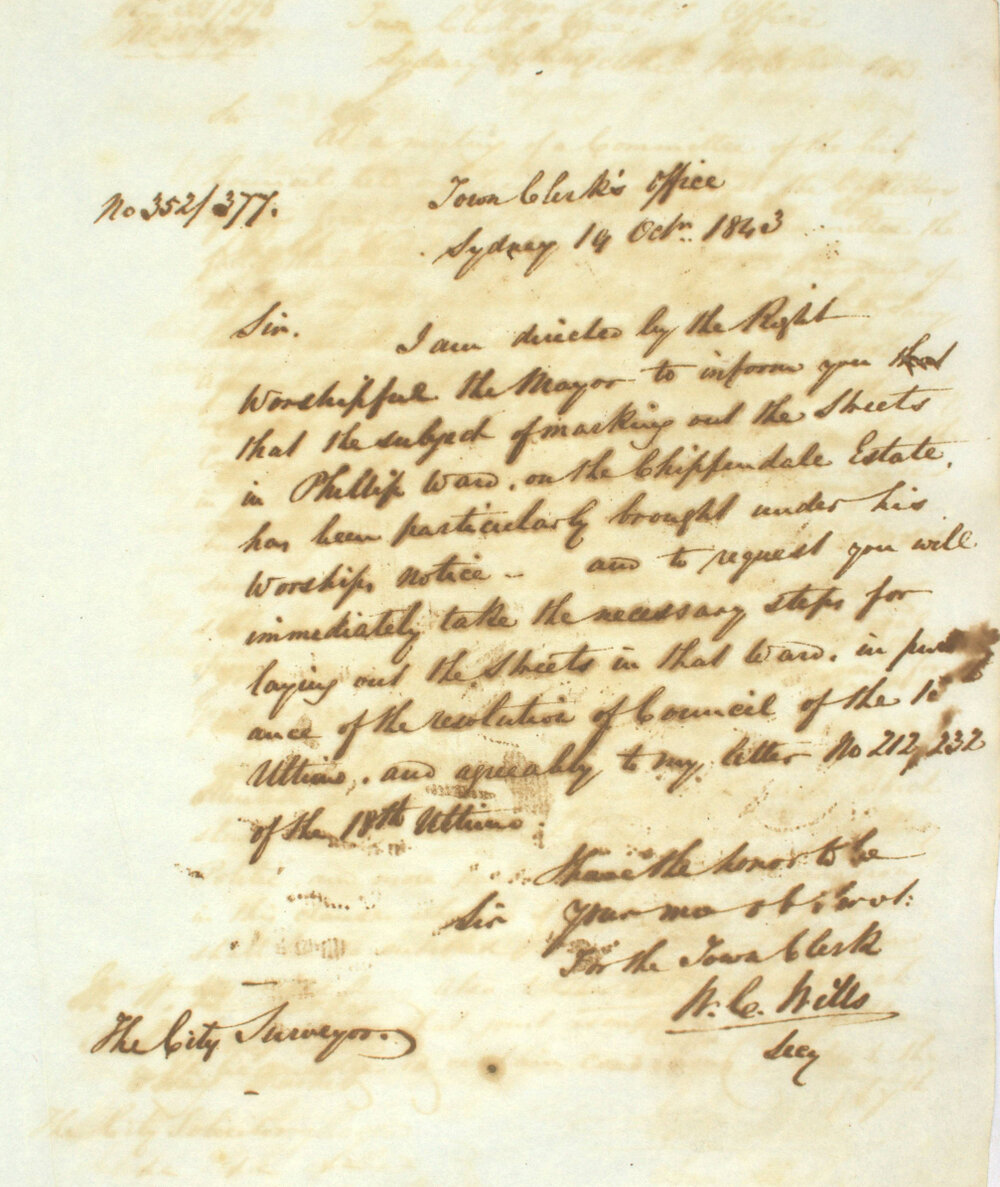 No 352/377.
Town Clerk's Office
Sydney 14 Octr. 1843
Sir.
I am directed by the Right
Worshipful the Mayor to inform you that
that the subject of marking out the Streets
in Phillip Ward. on the Chippendale Estate.
has been particularly brought under his
Worships notice - and to request you will
immediately take the necessary steps for
laying out the Streets in that Ward. in
ance of the resolution of Council of the
Ultimo. and agreeably to my letter No 212/232
of the 18th Ultimo.
I have the honor to be
Sir Your mo obt Servt:
For the Town Clerk
W. C. Wills
Secy
The City Surveyor.